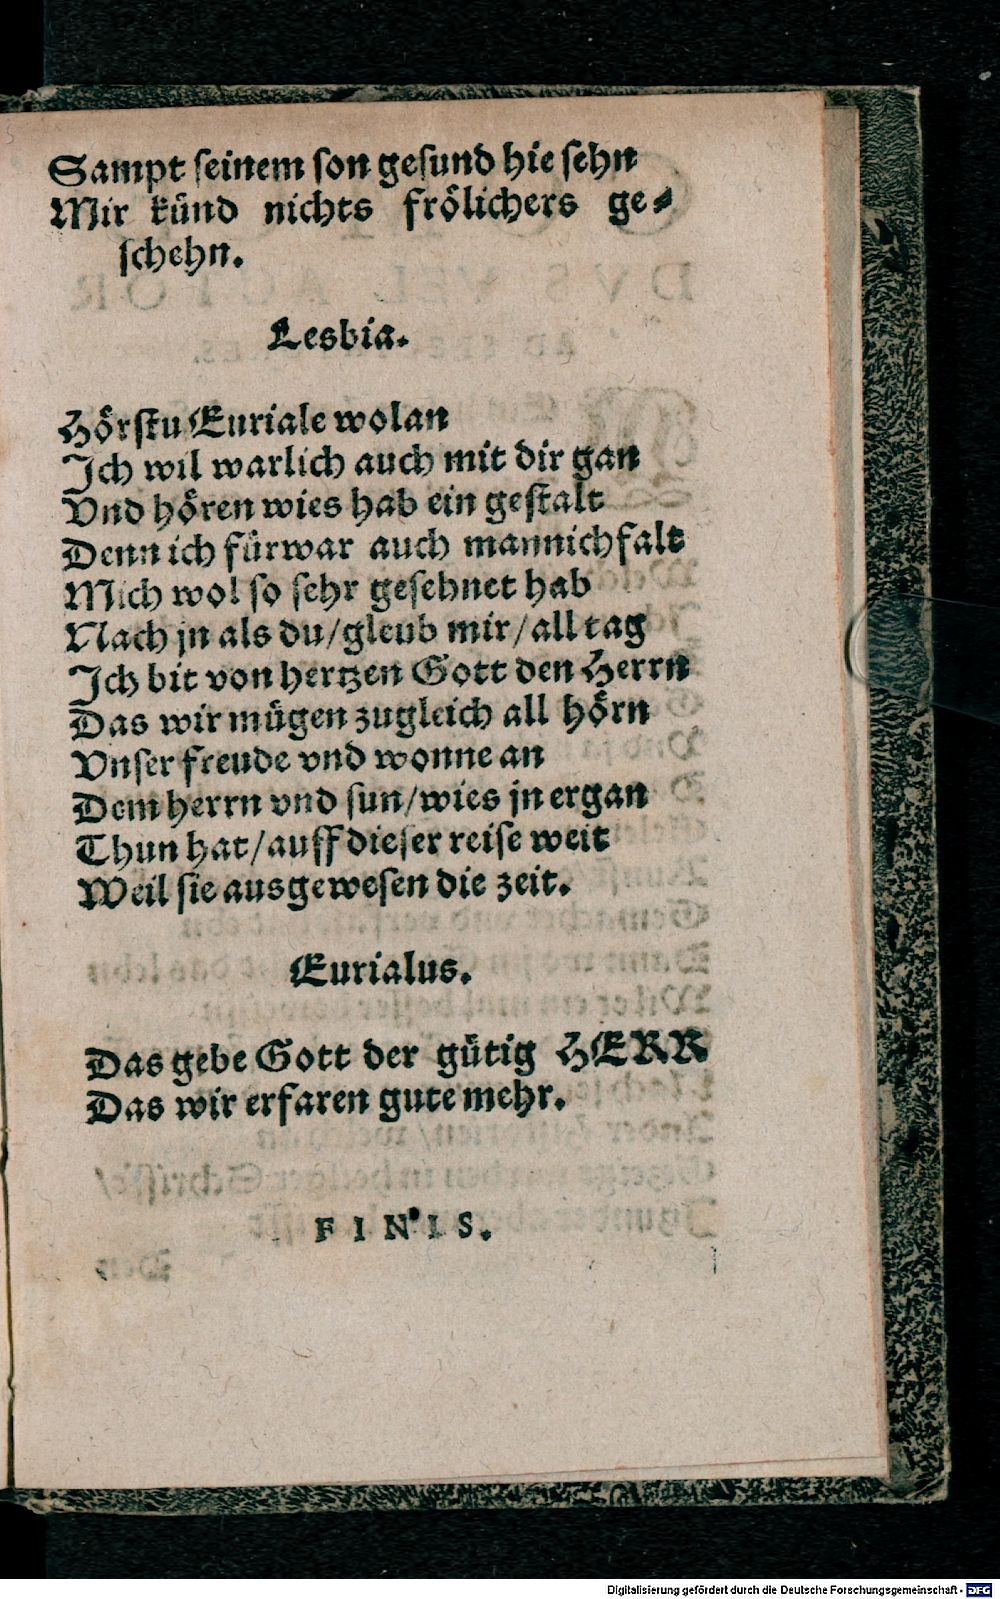 Sampt seinem son gesund hie sehn
Mir künd nichts frölichers ge⸗
schehn.
Lesbia.
Hörstu Euriale wolan
Ich wil warlich auch mit dir gan
Vnd hören wies hab ein gestalt
Denn ich fürwar auch mannichfalt
Mich wol so sehr gesehnet hab
Nach jn als du/gleub mir/all tag
Ich bit von hertzen Gott den Herrn
Das wir mügen zugleich all hörn
Vnser freude vnd wonne an
Dem herrn vnd sun/wies jn ergan
Thun hat/auff dieser reise weit
Weil sie ausgewesen die zeit.
Eurialus.
Das gebe Gott der gütig HERR
Das wir erfaren gute mehr.
FINIS.
Digitalisierung gefördert durch die Deutsche Forschungsgemeinschaft - DFG